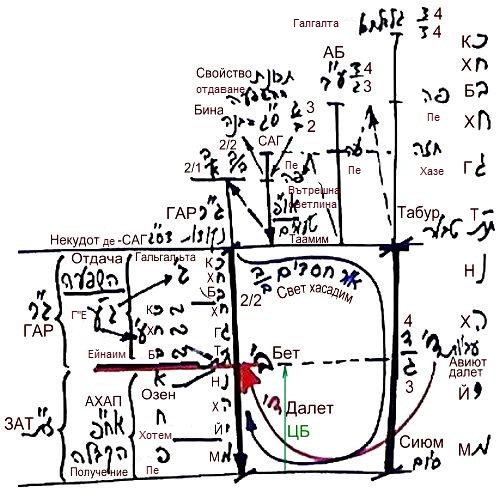 Галгалта
4 3
4 3
К
Х
Б
Х
Г
Т
Н
Х
Й
М
АБ
4 3
3 2
Свойство
отдаване
Бина
ס"ג
3
2
САГ
2/2
2/1
Пе
Пе
Пе
פה
חזה
Хазе
Вътрешна
светлина
Таамим
טעמים
Табур
טבור
ГАР
ג"ר
Некудот де -САГ
Отдача
השפעה
Галгальта
ГАР
ג"ר
Г"Е
ג"ע
Ейнаим
אור חסדים
Свет хасадим
2/2
К
Х
Б
Х
Г
Т
Н
Х
Й
М
К
Х
Б
Бет
ב'
Озен
Хотем
Пе
ЗАТ
АХАП
אח"פ
הקבלה
Получение
Далет
ЦБ
4
3
3
Авиют
далет
Сиюм
סיום